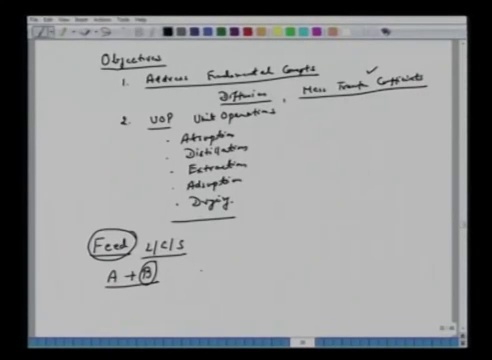 Objectives
1. Address Fundamental Concepts
Diffusion, Mass Transfer Coefficients ✓
2. UOP Unit Operations
• Absorption
• Distillation
• Extraction
• Adsorption
• Drying.
Feed L/G/S
A + B